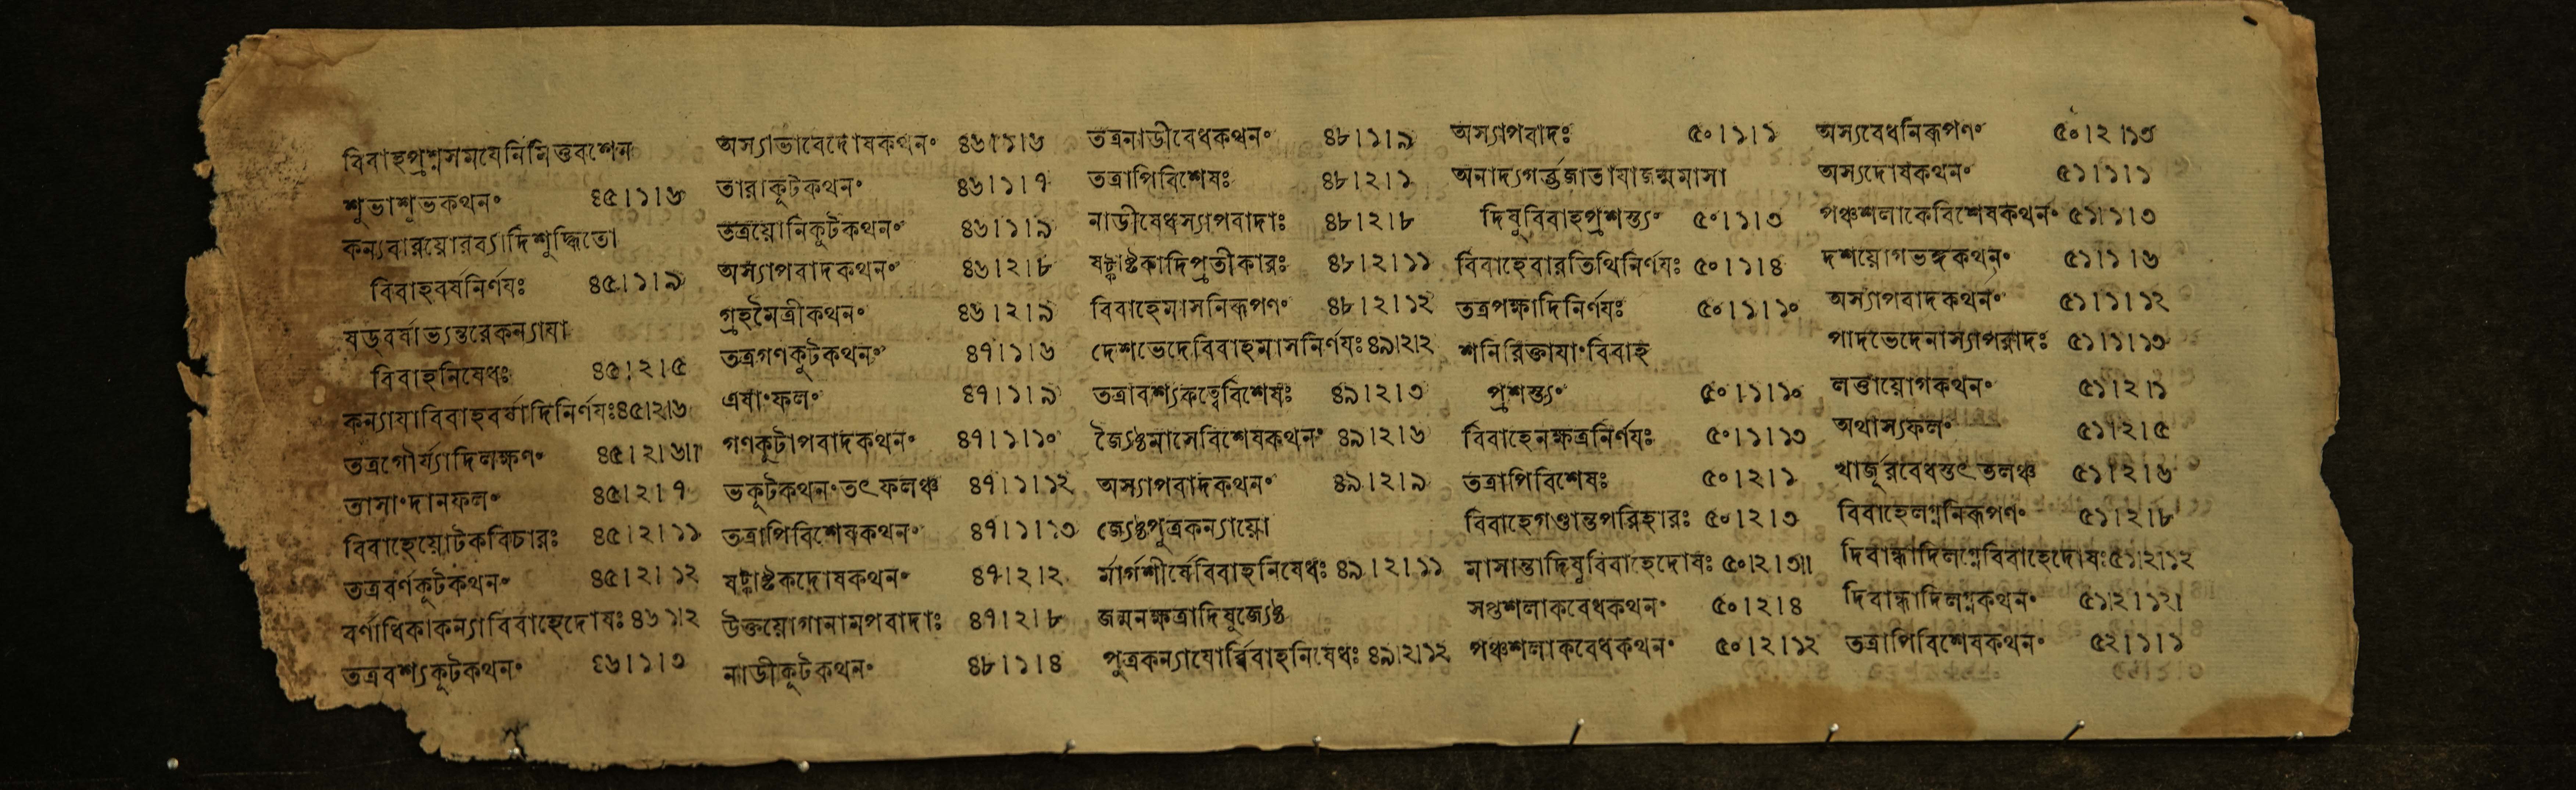 বিবাহপ্রশ্নসময়েনিমিত্তবশেন
শুভাশুভকথনং ৪৫।১।৬
কন্যাবরয়োরব্যাদিশুদ্ধিতো
বিবাহবর্ষনির্ণযঃ ৪৫।১।৯
ষড্বর্ষাভ্যন্তরেকন্যাযা
বিবাহনিষেধঃ ৪৫।২।৫
কন্যাযাবিবাহবর্ষাদিনির্ণযঃ ৪৫।২।৬
তত্রগৌর্য্যাদিলক্ষণং ৪৫।২।৬॥
তাসাংদানফলং ৪৫।২।৭
বিবাহেয়োটকবিচারঃ ৪৫।২।১১
তত্রবর্ণকূটকথনং ৪৫।২।১২
বর্ণাধিকাকন্যাবিবাহেদোষঃ ৪৬।১।২
তত্রবশ্যকূটকথনং ৪৬।১।৩
অস্যাভাবেদোষকথনং ৪৬।১।৬
তারাকূটকথনং ৪৬।১।৭
তত্রয়োনিকূটকথনং ৪৬।১।৯
অস্যাপবাদকথনং ৪৬।২।৮
গ্রহমৈত্রীকথনং ৪৬।২।৯
তত্রগণকূটকথনং ৪৭।১।৬
এষাংফলং ৪৭।১।৯
গণকূটাপবাদকথনং ৪৭।১।১০
ভকূটকথনংতৎফলঞ্চ ৪৭।১।১২
তত্রাপিবিশেষকথনং ৪৭।১।১৩
ষট্কাষ্টকদোষকথনং ৪৭।২।২
উক্তয়োগানামপবাদাঃ ৪৭।২।৮
নাডীকূটকথনং ৪৮।১।৪
তত্রনাডীবেধকথনং ৪৮।১।৯
তত্রাপিবিশেষঃ ৪৮।২।১
নাডীবেধস্যাপবাদাঃ ৪৮।২।৮
ষট্কাষ্টকাদিপ্রতীকারঃ ৪৮।২।১১
বিবাহেমাসনিরূপণং ৪৮।২।১২
দেশভেদেবিবাহমাসনির্ণযঃ ৪৯।২।২
তত্রাবশ্যকত্বেবিশেষঃ ৪৯।২।৩
জ্যৈষ্ঠমাসেবিশেষকথনং ৪৯।২।৬
অস্যাপবাদকথনং ৪৯।২।৯
জ্যেষ্ঠপুত্রকন্যায়ো
র্মার্গশীর্ষেবিবাহনিষেধঃ ৪৯।২।১১
জন্মনক্ষত্রাদিষুজ্যেষ্ঠ
পুত্রকন্যাযোর্ব্বিবাহনিষেধঃ ৪৯।২।১২
অস্যাপবাদঃ ৫০।১।১
অনাদ্যগর্ব্ভজাতাযাজন্মমাসা
দিষুবিবাহপ্রশস্ত্যং ৫০।১।৩
বিবাহেবারতিথিনির্ণযঃ ৫০।১।৪
তত্রপক্ষাদিনির্ণযঃ ৫০।১।১০
শনিরিক্তাযাংবিবাহ
প্রশস্ত্যং ৫০।১।১০
বিবাহেনক্ষত্রনির্ণযঃ ৫০।১।১৩
তত্রাপিবিশেষঃ ৫০।২।১
বিবাহেগণ্ডান্তপরিহারঃ ৫০।২।৩
মাসান্তাদিষুবিবাহেদোষঃ ৫০।২।৩॥
সপ্তশলাকবেধকথনং ৫০।২।৪
পঞ্চশলাকবেধকথনং ৫০।২।১২
অস্যবেধনিরূপণং ৫০।২।১৩
অস্যদোষকথনং ৫১।১।১
পঞ্চশলাকেবিশেষকথনং ৫১।১।৩
দশয়োগভঙ্গকথনং ৫১।১।৬
অস্যাপবাদকথনং ৫১।১।১২
পাদভেদেনাস্যাপবাদঃ ৫১।১।১৩
লত্তায়োগকথনং ৫১।২।১
অথাস্যফলং ৫১।২।৫
খার্জূরবেধস্তৎফলঞ্চ ৫১।২।৬
বিবাহেলগ্ননিরূপণং ৫১।২।৮
দিবান্ধাদিলগ্নেবিবাহেদোষঃ ৫১।২।১২
দিবান্ধাদিলগ্নকথনং ৫১।২।১২।
তত্রাপিবিশেষকথনং ৫২।১।১